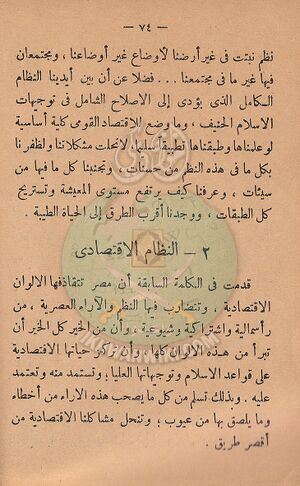 — ٧٤ —
نظم نبتت فى غير أرضنا لأوضاع غير أوضاعنا ، ومجتمعان
فيها غير ما فى مجتمعنا ... فضلا عن أن بين أيدينا النظام
الكامل الذى يؤدى إلى الاصلاح الشامل فى توجيهات
الاسلام الحنيف ، وما وضع للاقتصاد القومى كلية أساسية
لو علمناها وطبقناها تطبيقاً سليما لانحلت مشكلاتنا ولظفرنا
بكل ما فى هذه النظم من حسنات ، وتجنبنا كل ما فيها من
سيئات ، وعرفنا كيف يرتفع مستوى المعيشة وتستريح
كل الطبقات ، ووجدنا أقرب الطرق إلى الحياة الطيبة .
٢ — النظام الاقتصادى
قدمت فى الكلمة السابقة أن مصر تتقاذفها الالوان
الاقتصادية ، وتتضارب فيها النظم والآراء العصرية ، من
رأسمالية واشتراكية وشيوعية ، وأن من الخير كل الخير أن
تبرأ من هذه الالوان كلها ، وأن تركز حياتها الاقتصادية
على قواعد الاسلام وتوجيهاتها العليا ، وتستمد منه وتعتمد
عليه . وبذلك تسلم من كل ما يصحب هذه الاراء من أخطاء
وما يلصق بها من عيوب ، وتنحل مشاكلنا الاقتصادية من
أقصر طريق .